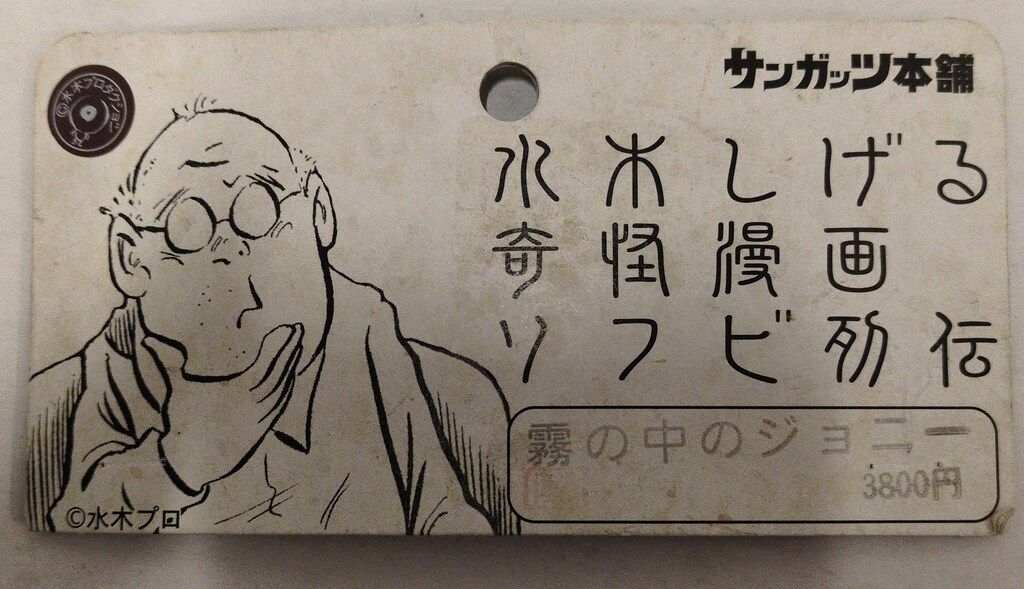 ©水木プロダクション
サンガッツ本舗
水木しげる
奇怪漫画
ソフビ列伝
霧の中のジョニー
3800円
©水木プロ